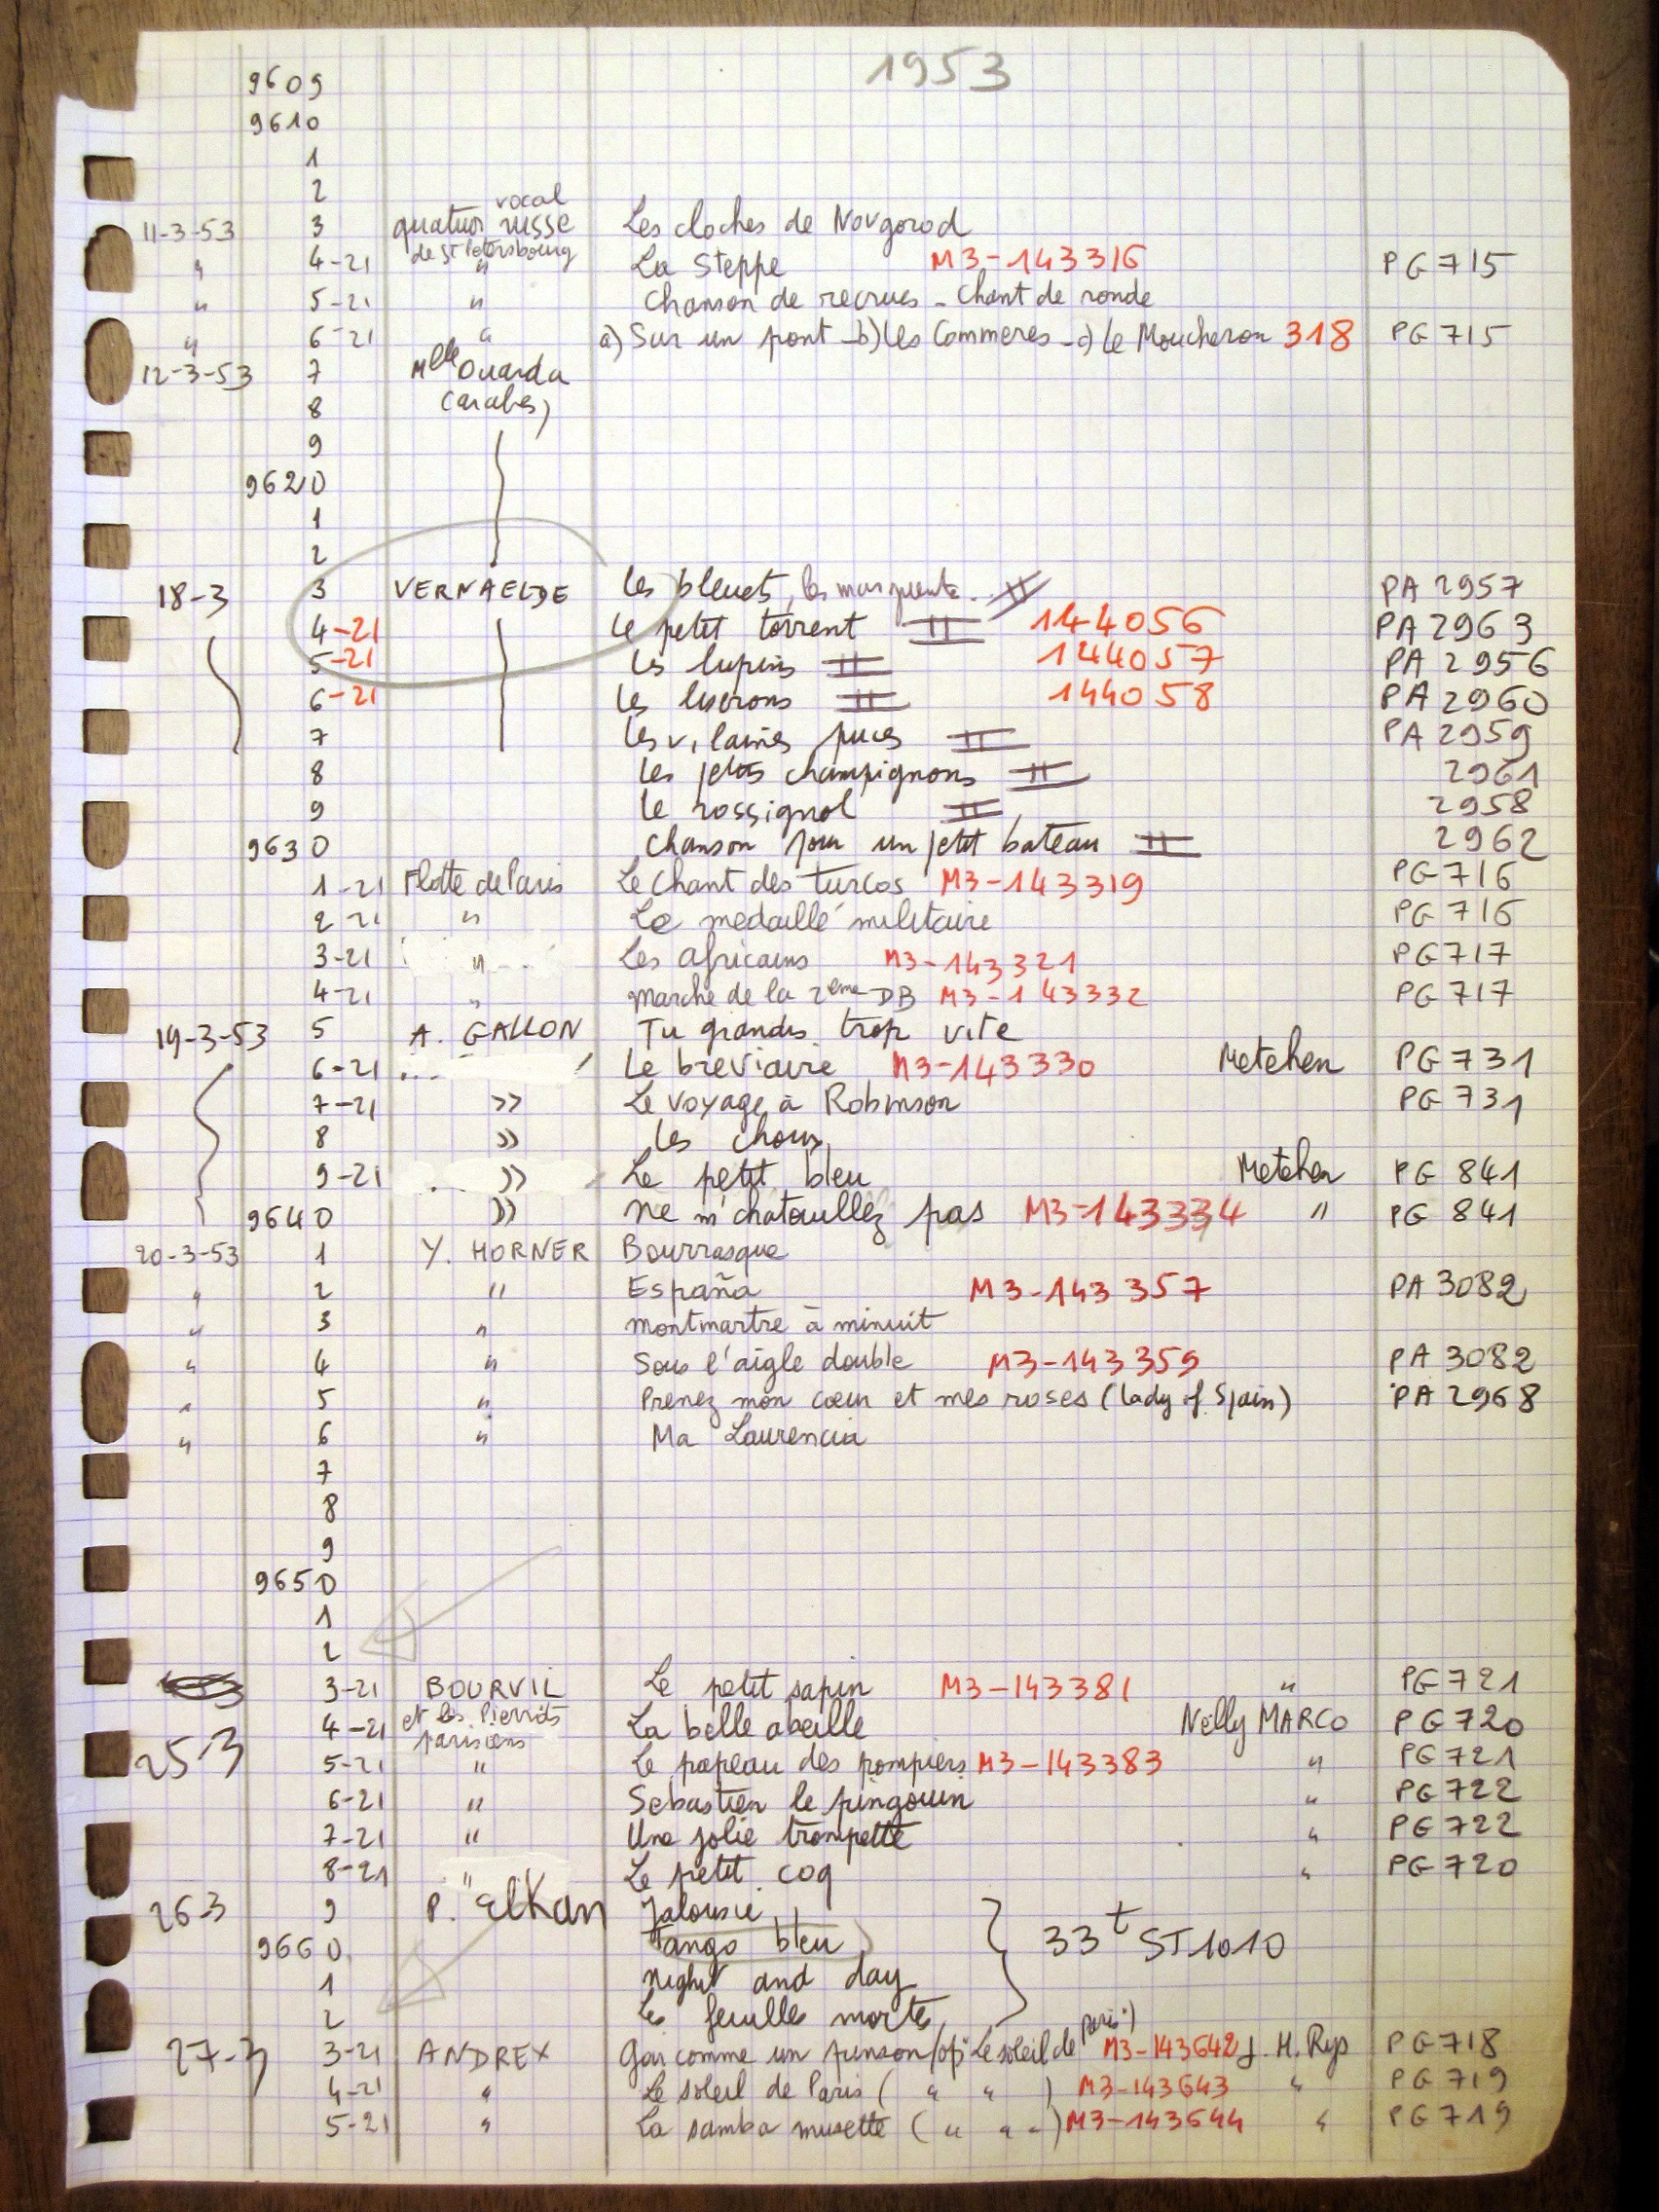 1953
9609
9610
1
2 vocal
11-3-53 3 quatuor russe Les cloches de Novgorod
de St Petersbourg
" 4-21 " La Steppe M3-143316 PG 715
" 5-21 " Chanson de recrues - Chant de ronde
" 6-21 " a) Sur un pont -b) Les Commeres -c) Le Moucheron 318 PG 715
12-3-53 7 Melle Ouarda
8 (arabes)
9
9620
1
2
18-3 3 VERNAELDE Les bleuets, les marguerite. PA 2957
4-21 Le petit torrent 144056 PA 2963
5-21 Les lupins 144057 PA 2956
6-21 Les liserons 144058 PA 2960
7 Les vilaines puces PA 2959
8 Les petits champignons 2961
9 Le rossignol 2958
9630 Chanson pour un petit bateau 2962
1-21 Flotte de Paris Le Chant des turcos M3-143319 PG 716
2-21 " Le medaillé militaire PG 716
3-21 " Les africains M3-143321 PG 717
4-21 " Marche de la 2eme DB M3-143332 PG 717
19-3-53 5 A. GALLON Tu grandis trop vite
6-21 Le breviaire M3-143330 Metehen PG 731
7-21 " Le voyage à Robinson PG 731
8 " Les choux
9-21 " Le petit bleu Metehen PG 841
9640 " Ne m'chatouillez pas M3-143334 " PG 841
20-3-53 1 Y. HORNER Bourrasque
" 2 " España M3-143357 PA 3082
" 3 " Montmartre à minuit
" 4 " Sous l'aigle double M3-143359 PA 3082
" 5 " Prenez mon cœur et mes roses (lady of Spain) PA 2968
" 6 " Ma Laurencia
7
8
9
9650
1
2
3-21 BOURVIL Le petit sapin M3-143381 " PG 721
et les Pierrots
4-21 parisiens La belle abeille Nelly MARCO PG 720
25-3 5-21 " Le papeau des pompiers M3-143383 " PG 721
6-21 " Sebastien le pingouin " PG 722
7-21 " Une jolie trompette " PG 722
8-21 " Le petit coq " PG 720
26-3 9 P. Elkan Jalousie
9660 Tango bleu 33t ST 1010
1 Night and day
2 Les feuilles mortes
27-3 3-21 ANDREX Gai comme un pinson (op: Le soleil de Paris) M3-143642 J. H. Rys PG 718
4-21 " Le soleil de Paris ( " " ) M3-143643 " PG 719
5-21 " La samba musette ( " " " ) M3-143644 " PG 719